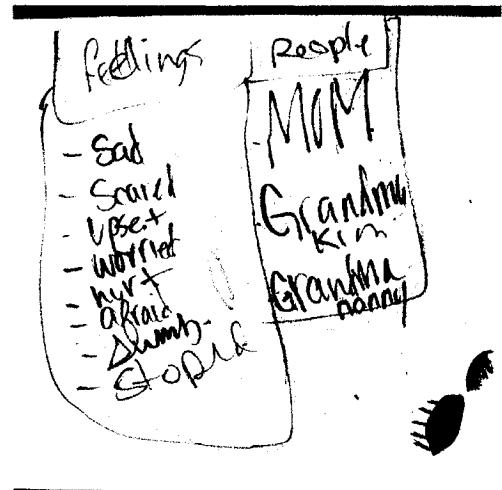 Feelings
- Sad
- Scared
- Upset
- worried
- hurt
- afraid
- Dumb.
- Stopid
People
MOM
Grandma
Kim
Grandma
nanny